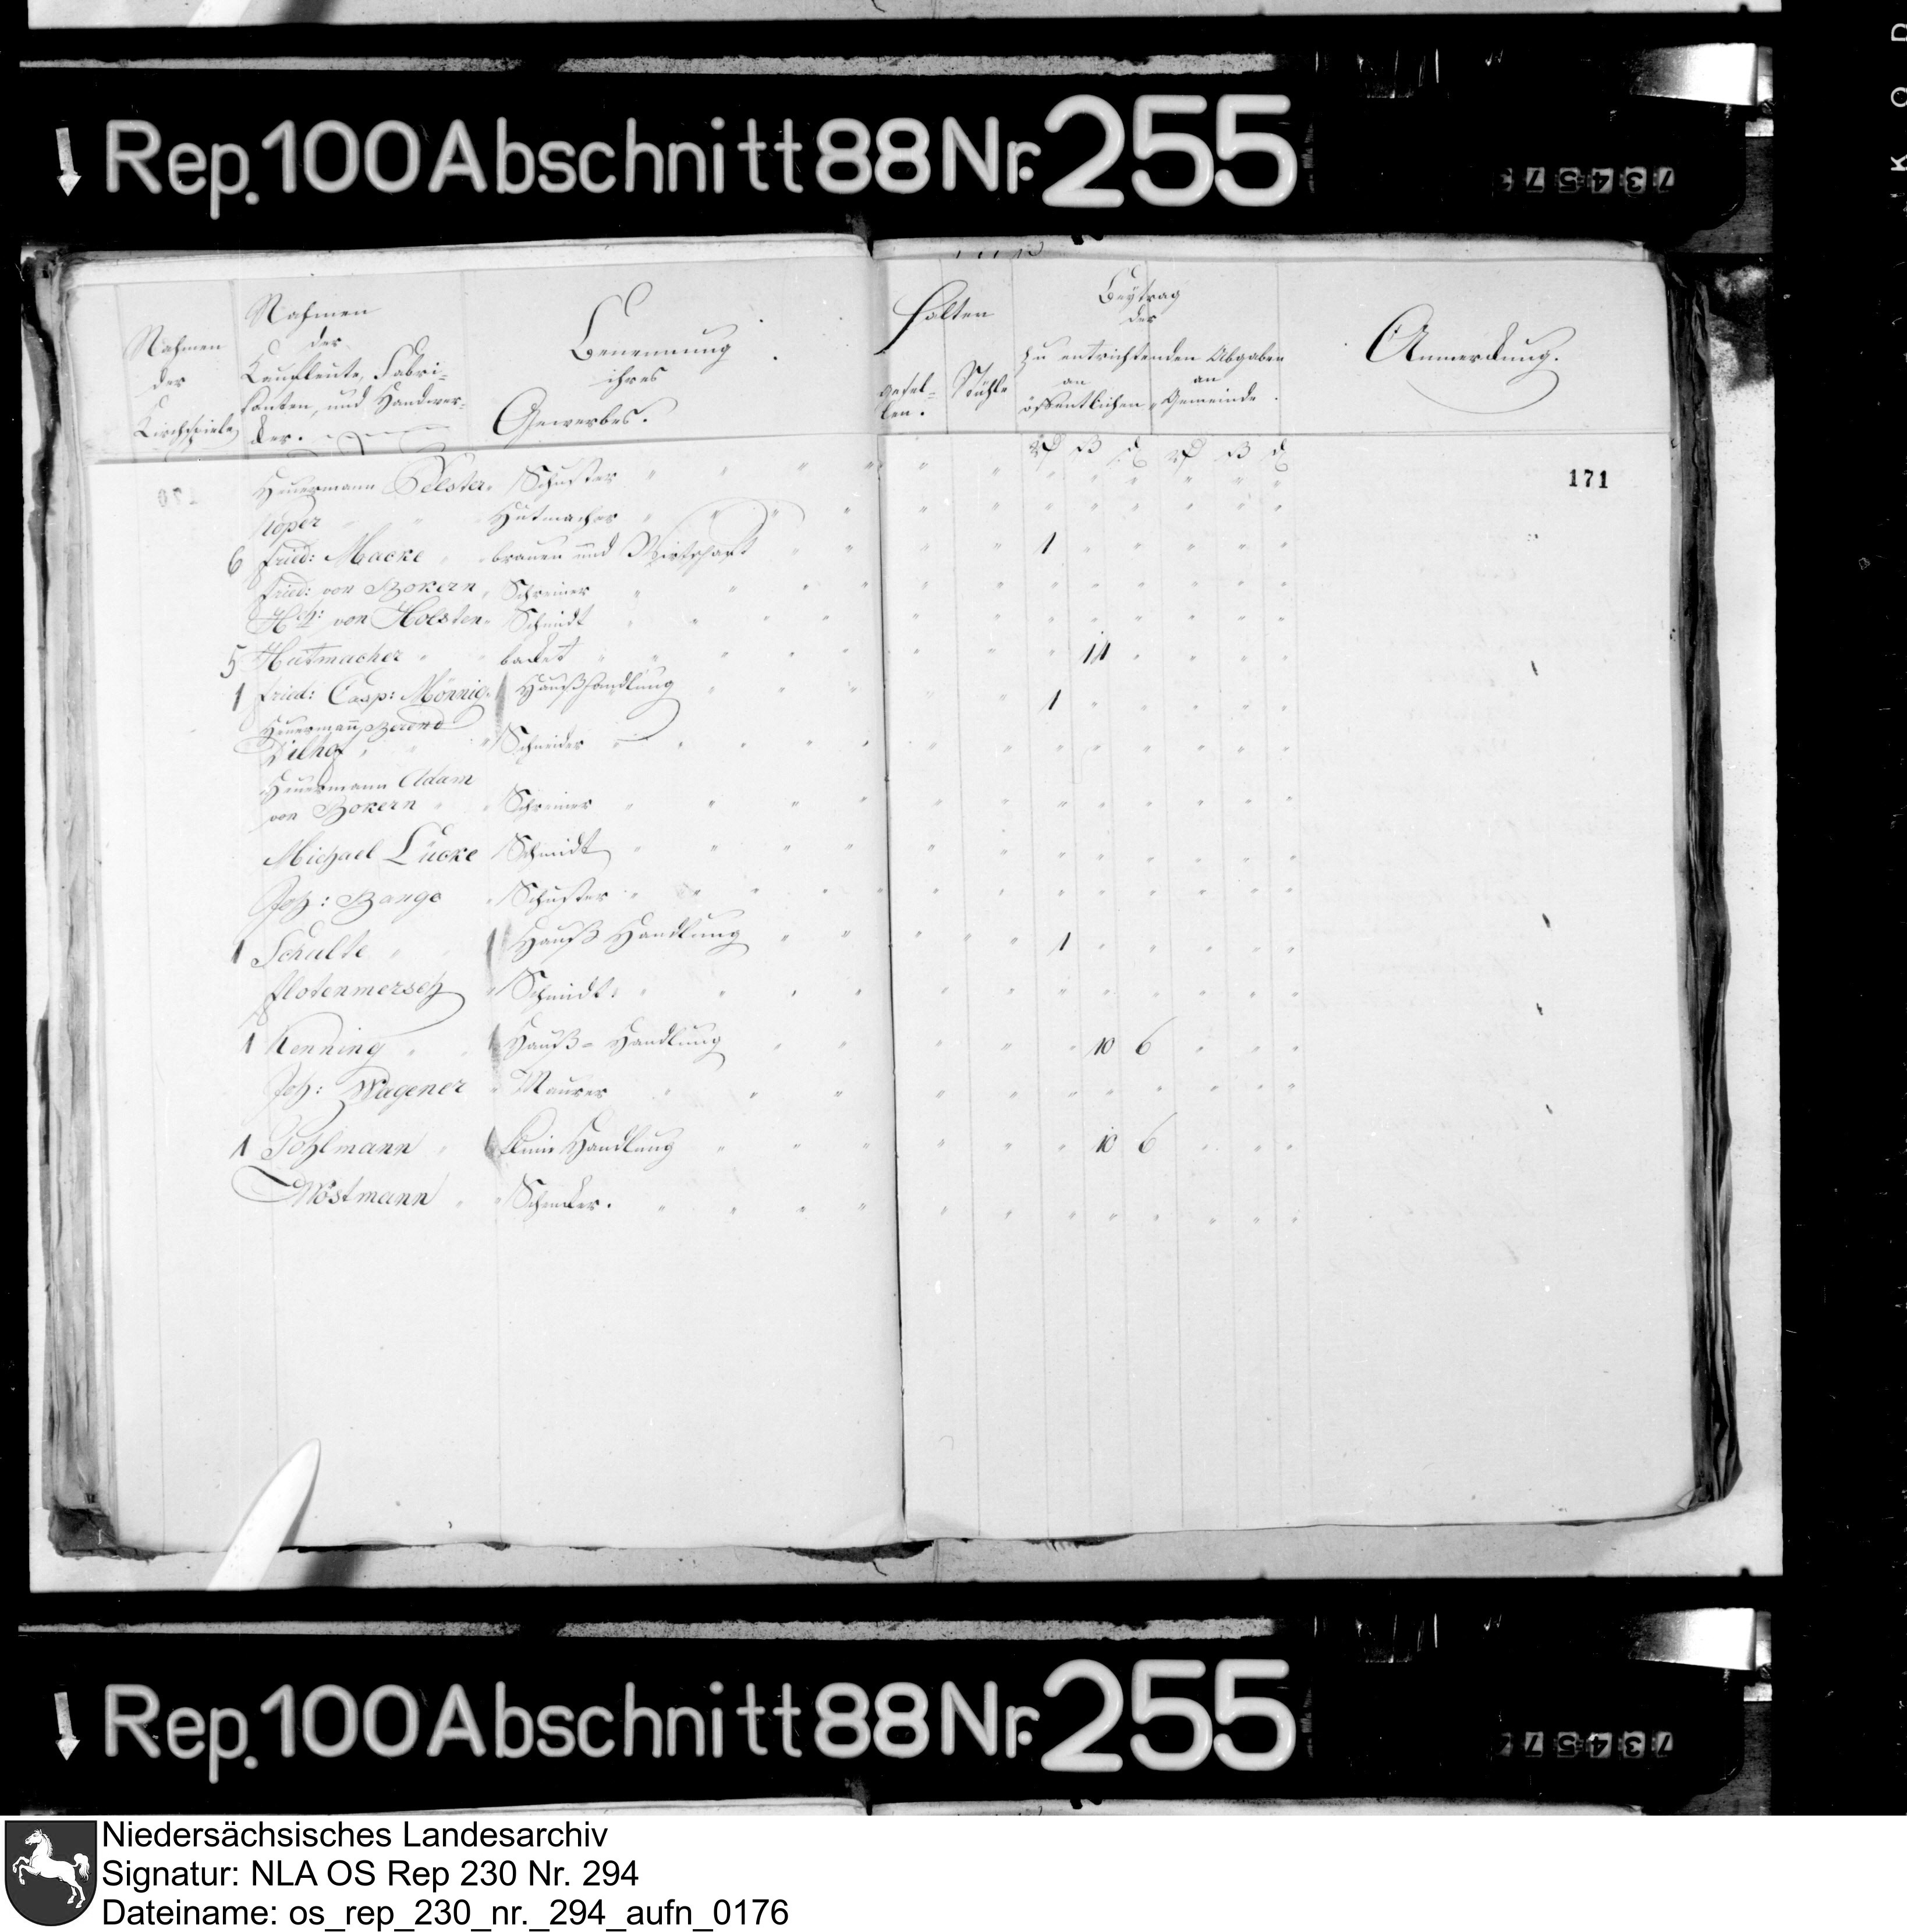 Rep. 100 Abschnitt 88 Nr. 255
Nahmen der Kirchspiele
Nahmen der Kaufleute, Fabrikanten, und Handwerker.
Benennung ihres Gewerbes.
Halten
Gesellen.
Stühle
Beÿtrag der zu entrichtenden Abgaben
an öffentlichen
an Gemeinde
Anmerckung.
171
Heuermann Schuster
Hutmacher
6 Fried: Macke brauen und Wirtschaft 1
Fried: von Bokern Schreiner
von Holsten Schmidt
5 Hutmacher backet 14
1 Fried: Casp: Mönnig Haußhandlung 1
Heuermann Berend
Dilhof Schneider
Heuermann Adam
von Bokern Schreiner
Michael Lücke Schmidt
Joh: Bange Schuster
1 Schulte Hauß Handlung 1
Flotenmersch Schmidt
1 Kenning Hauß-Handlung 10 6
Joh: Wagener Maurer
1 Pohlmann Handlung 10 6
Wöstmann
Rep. 100 Abschnitt 88 Nr. 255
Niedersächsisches Landesarchiv
Signatur: NLA OS Rep 230 Nr. 294
Dateiname: os_rep_230_nr._294_aufn_0176